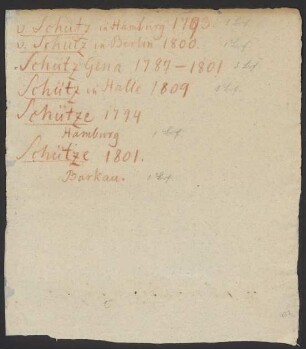 v. Schütz in Hamburg 1793. 1 Br.
v. Schütz in Berlin 1800. 1 Br.
Schütz Jena 1787–1801 1 Br.
Schütz in Halle 1809 1 Br.
Schütze 1794
Hamburg 1 Br.
Schütze 1801.
Barkau. 1 Br.